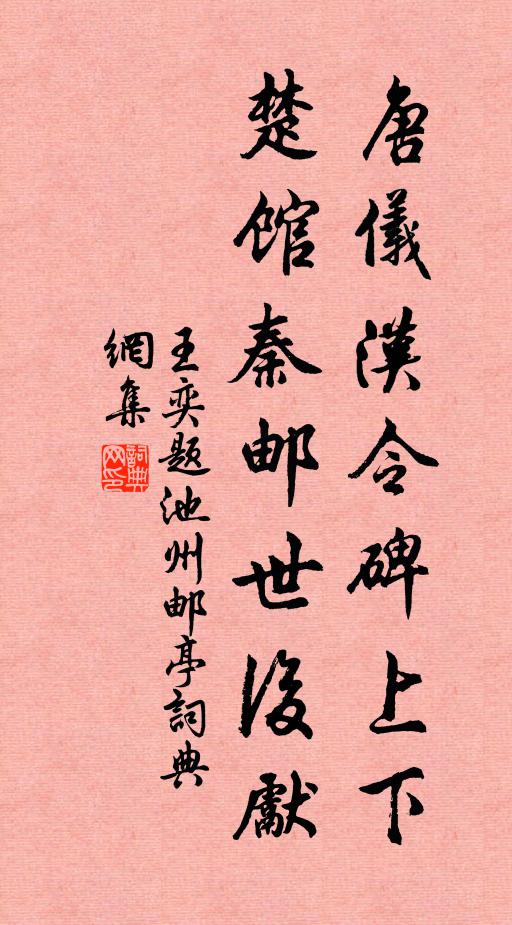 唐儀漢令碑上下
楚館秦邮世後獻
王奕题池州邮亭詞典
網集
詞典网印